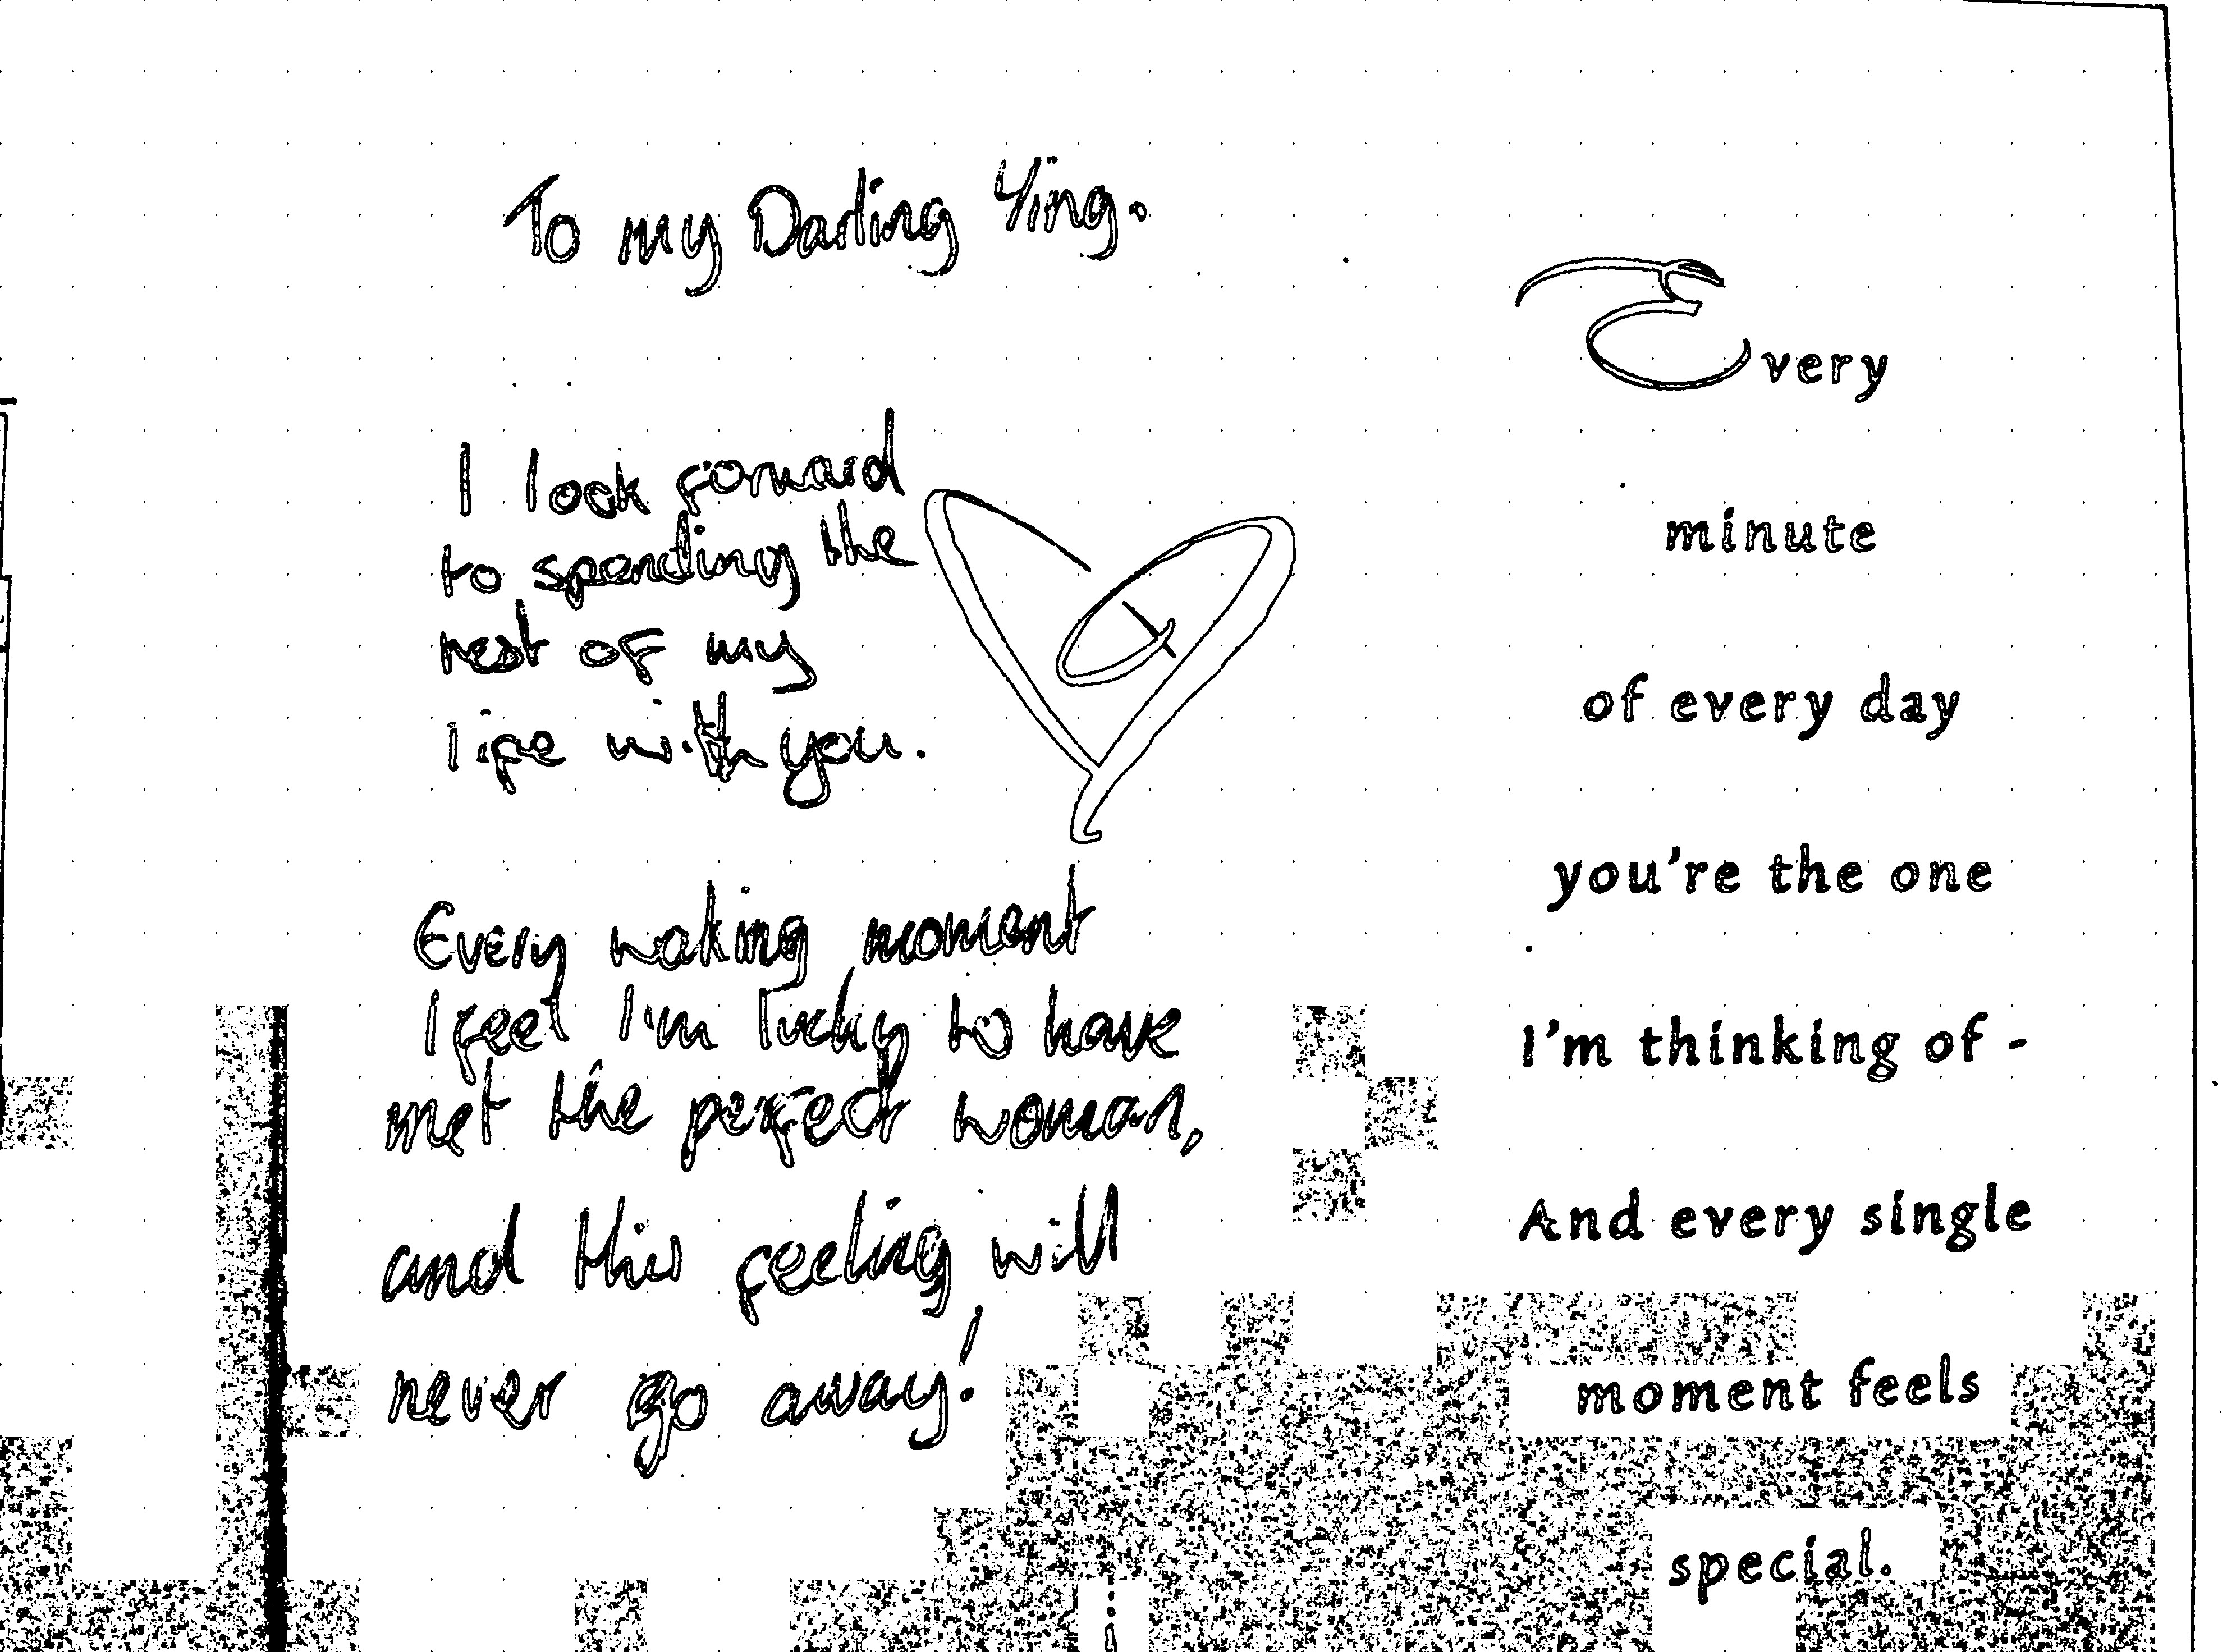 To my Darling Ying.
I look forward
to spending the
rest of my
life with you.
Every waking moment
I feel I'm lucky to have
met the perfect woman,
and this feeling will
never go away!
Every
minute
of every day
you're the one
I'm thinking of -
And every single
moment feels
special.